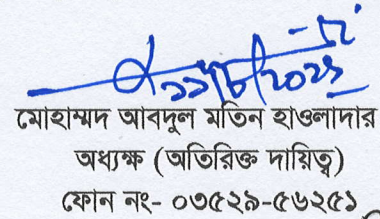 ১১/৮/২০২১
মোহাম্মদ আবদুল মতিন হাওলাদার
অধ্যক্ষ (অতিরিক্ত দায়িত্ব)
ফোন নং- ০৩৫২৯-৫৬২৫১